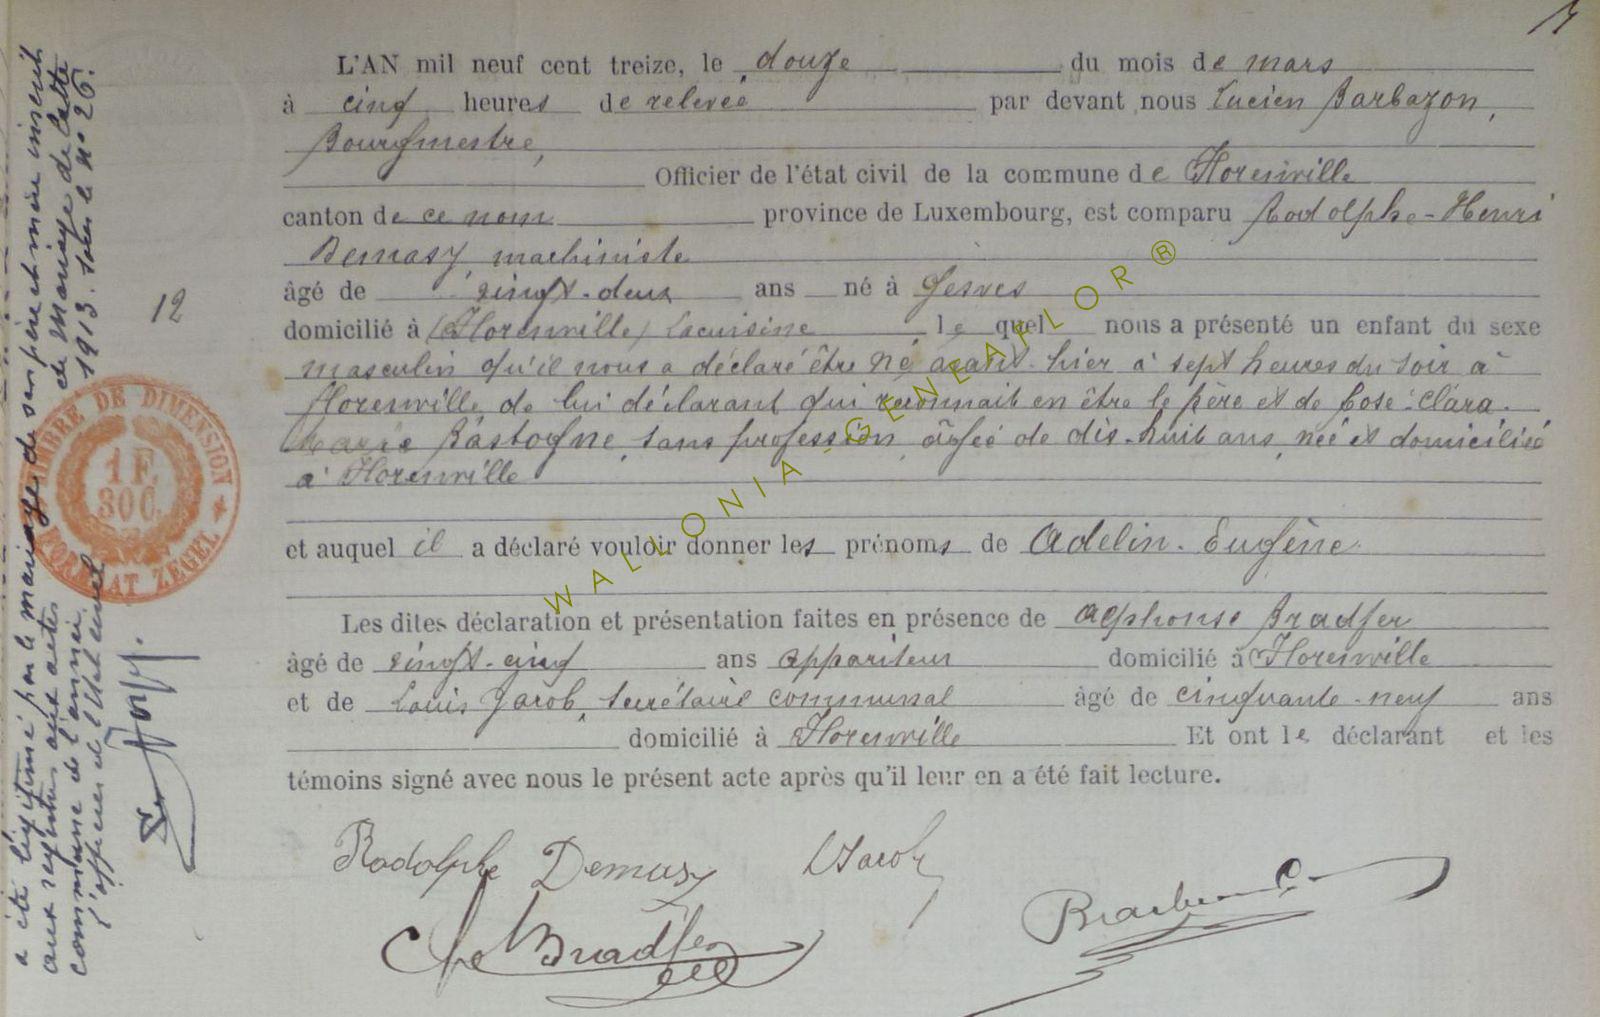 L'AN mil neuf cent treize, le douze du mois de mars
à cinq heures de relevée par devant nous Lucien Barbazon,
Bourgmestre,
Officier de l'état civil de la commune de Florenville
canton de ce nom province de Luxembourg, est comparu Rodolphe-Henri
Demasy, machiniste
âgé de vingt-deux ans né à Gesves
domicilié à (Florenville) Lacuisine, le quel nous a présenté un enfant du sexe
masculin qu'il nous a déclaré être né avant-hier à sept heures du soir à
Florenville, de lui déclarant qui reconnait en être le père et de Rose-Clara-
Marie Bastogne, sans profession, âgée de dix-huit ans, née et domiciliée
à Florenville
et auquel il a déclaré vouloir donner les prénoms de Adelin-Eugène
Les dites déclaration et présentation faites en présence de Alphonse Bradfer
âgé de vingt-cinq ans appariteur domicilié à Florenville
et de Louis Jacob, secrétaire communal âgé de cinquante-neuf ans
domicilié à Florenville Et ont le déclarant et les
témoins signé avec nous le présent acte après qu'il leur en a été fait lecture.
Rodolphe Demasy LJacob
Bradfer
12
a été légitimé par le mariage de ses père et mère inscrit
aux registres aux actes de Mariage de cette
commune de l'année 1913 sous le N° 26.
l'officier de l'Etat civil
TIMBRE DE DIMENSION
1 F. 30 C.
FORMAAT ZEGEL
WALLONIA-GENEAFLOR®